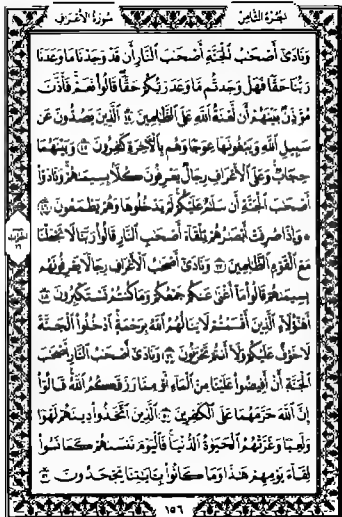 الجزء الثامن
سورة الأعراف
وَنَادَىٰ أَصْحَٰبُ ٱلْجَنَّةِ أَصْحَٰبَ ٱلنَّارِ أَن قَدْ وَجَدْنَا مَا وَعَدَنَا
رَبُّنَا حَقًّا فَهَلْ وَجَدتُّم مَّا وَعَدَ رَبُّكُمْ حَقًّا قَالُوا۟ نَعَمْ فَأَذَّنَ
مُؤَذِّنٌۢ بَيْنَهُمْ أَن لَّعْنَةُ ٱللَّهِ عَلَى ٱلظَّٰلِمِينَ ٤٤ ٱلَّذِينَ يَصُدُّونَ عَن
سَبِيلِ ٱللَّهِ وَيَبْغُونَهَا عِوَجًا وَهُم بِٱلْءَاخِرَةِ كَٰفِرُونَ ٤٥ وَبَيْنَهُمَا
حِجَابٌ وَعَلَى ٱلْأَعْرَافِ رِجَالٌ يَعْرِفُونَ كُلًّۢا بِسِيمَىٰهُمْ وَنَادَوْا۟
أَصْحَٰبَ ٱلْجَنَّةِ أَن سَلَٰمٌ عَلَيْكُمْ لَمْ يَدْخُلُوهَا وَهُمْ يَطْمَعُونَ ٤٦
۞ وَإِذَا صُرِفَتْ أَبْصَٰرُهُمْ تِلْقَآءَ أَصْحَٰبِ ٱلنَّارِ قَالُوا۟ رَبَّنَا لَا تَجْعَلْنَا
مَعَ ٱلْقَوْمِ ٱلظَّٰلِمِينَ ٤٧ وَنَادَىٰٓ أَصْحَٰبُ ٱلْأَعْرَافِ رِجَالًا يَعْرِفُونَهُم
بِسِيمَىٰهُمْ قَالُوا۟ مَآ أَغْنَىٰ عَنكُمْ جَمْعُكُمْ وَمَا كُنتُمْ تَسْتَكْبِرُونَ ٤٨
أَهَٰٓؤُلَآءِ ٱلَّذِينَ أَقْسَمْتُمْ لَا يَنَالُهُمُ ٱللَّهُ بِرَحْمَةٍ ٱدْخُلُوا۟ ٱلْجَنَّةَ
لَا خَوْفٌ عَلَيْكُمْ وَلَآ أَنتُمْ تَحْزَنُونَ ٤٩ وَنَادَىٰٓ أَصْحَٰبُ ٱلنَّارِ أَصْحَٰبَ
ٱلْجَنَّةِ أَنْ أَفِيضُوا۟ عَلَيْنَا مِنَ ٱلْمَآءِ أَوْ مِمَّا رَزَقَكُمُ ٱللَّهُ قَالُوٓا۟
إِنَّ ٱللَّهَ حَرَّمَهُمَا عَلَى ٱلْكَٰفِرِينَ ٥٠ ٱلَّذِينَ ٱتَّخَذُوا۟ دِينَهُمْ لَهْوًا
وَلَعِبًا وَغَرَّتْهُمُ ٱلْحَيَوٰةُ ٱلدُّنْيَا فَٱلْيَوْمَ نَنسَىٰهُمْ كَمَا نَسُوا۟
لِقَآءَ يَوْمِهِمْ هَٰذَا وَمَا كَانُوا۟ بِـَٔايَٰتِنَا يَجْحَدُونَ ٥١
١٥٦